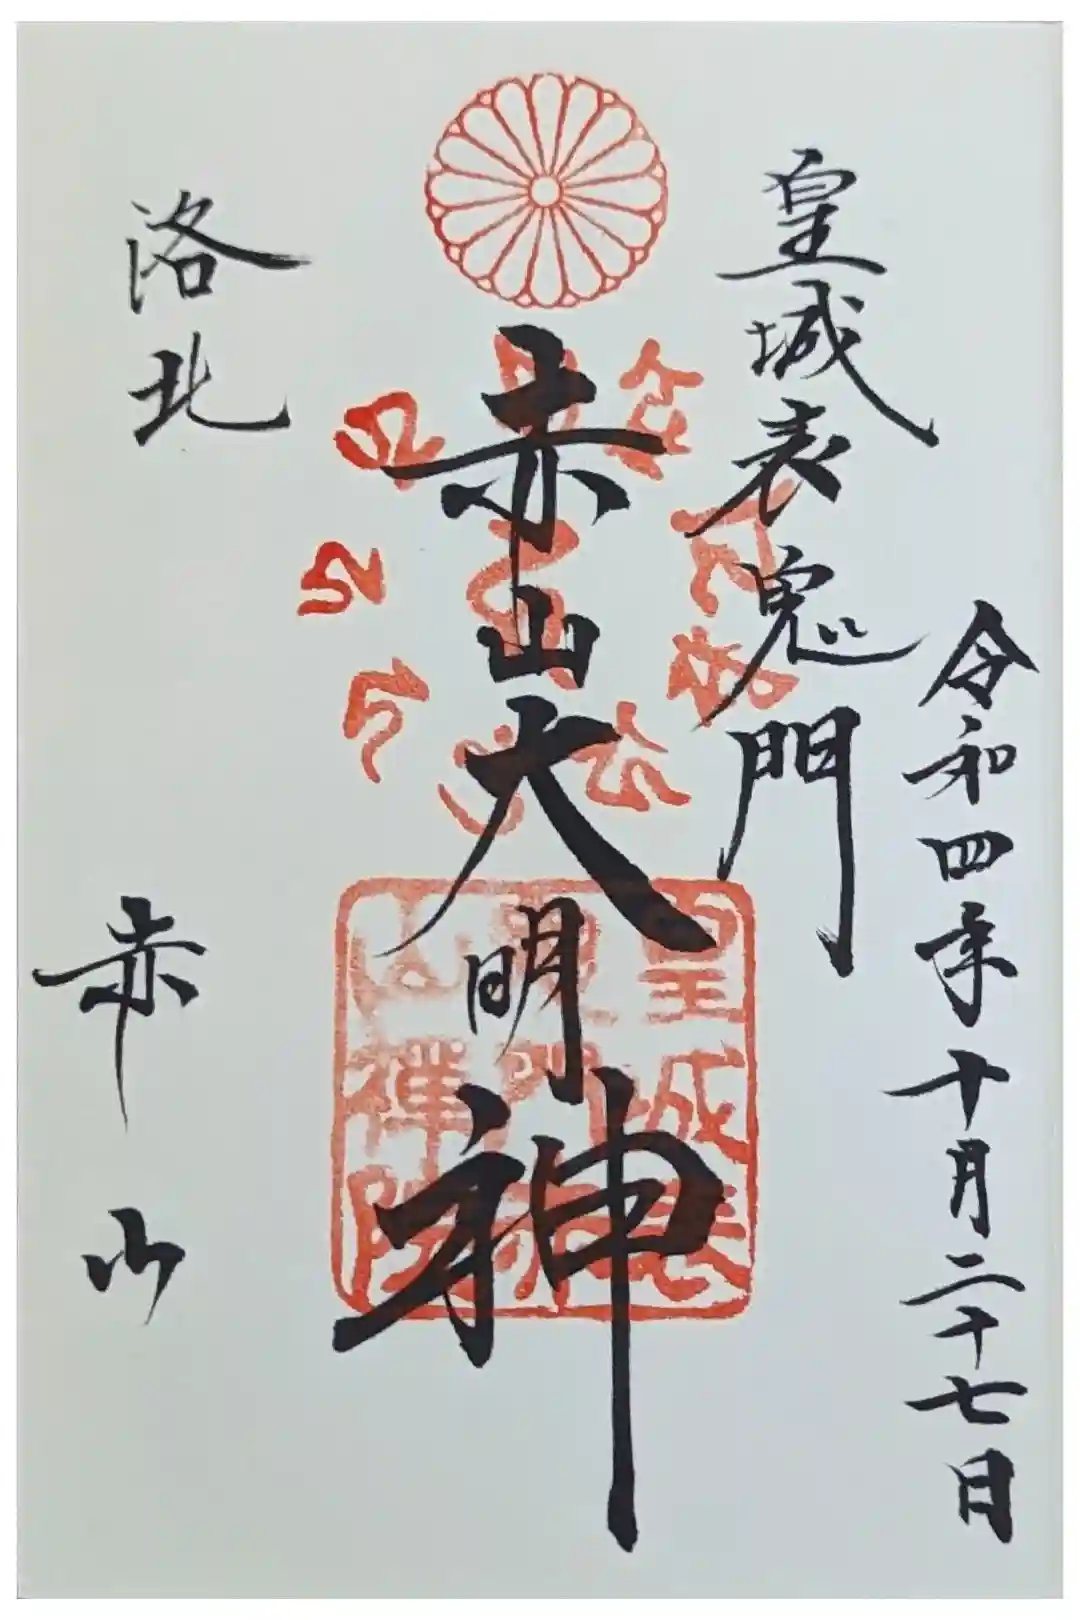 令和四年十月二十七日
皇城表鬼門
赤山大明神
洛北
赤山
皇城表
山禅院